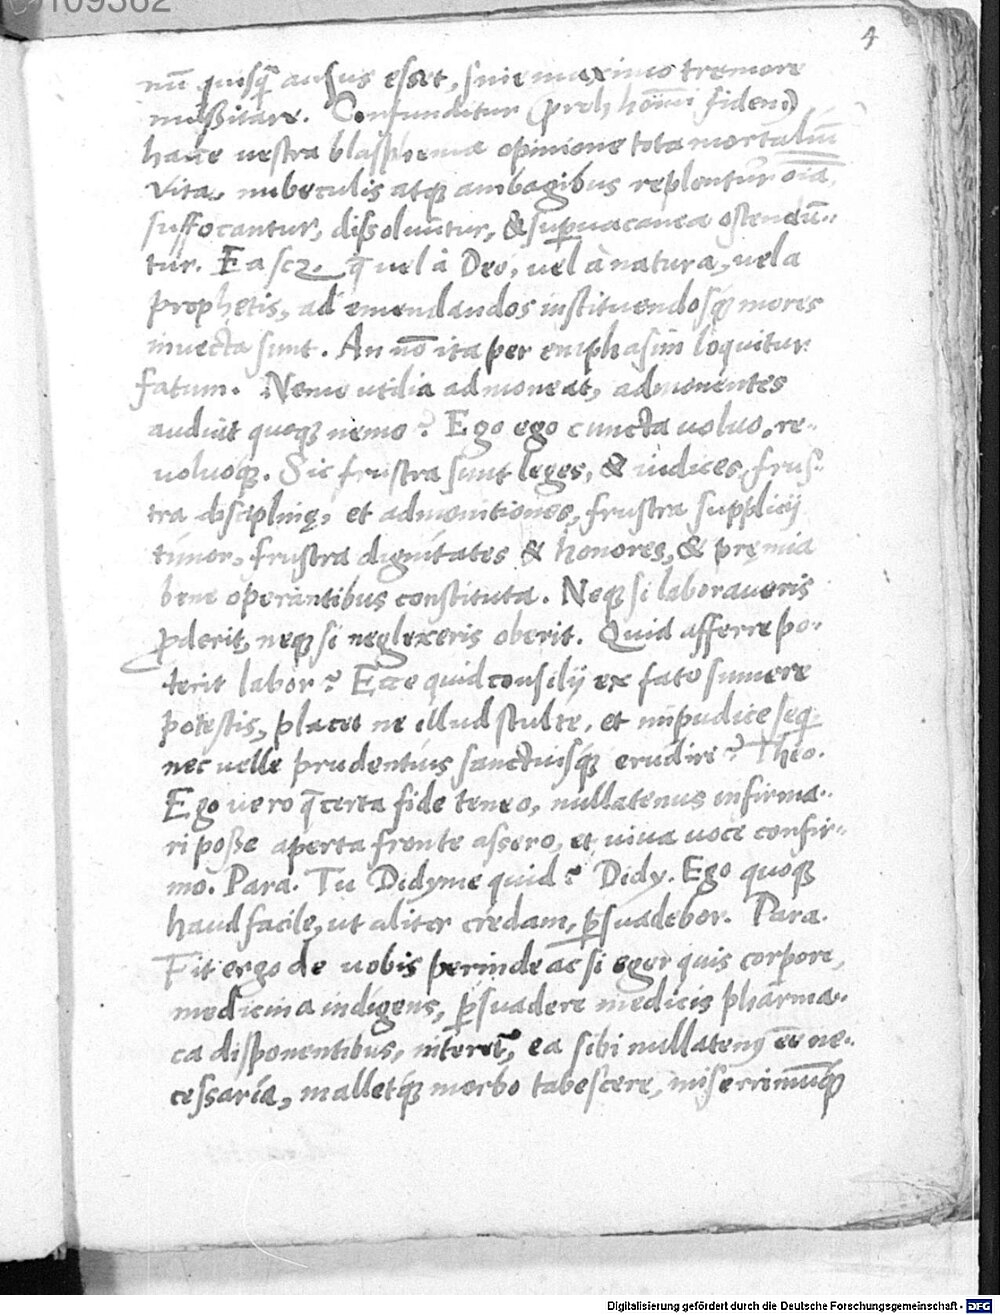 109362
4
nũ quisq̃ ausus esset, sine maximo tremore
mussitare. Confunditur (proh hoĩm fidem)
haec uestra blasphema opinione tota mortaliũ
vita, nubeculis atq; ambagibus replentur oĩa,
suffocantur, dissoluũtur, & supuacanea ostendũ-
tur. Ea scz. q̃ vel à Deo, vel à natura, vel a
prophetis, ad emendandos instituendosq; mores
inuecta sunt. An nõ ita per emphasim loquitur
fatum. Nemo utilia admoneat, admonentes
audiat quoq; nemo? Ego ego cuncta uoluo, re-
voluoq;. Sic frustra sunt leges, & iudices, frus-
tra disciplinę, et admonitiones, frustra supplicij
timor, frustra dignitates & honores, & pręmia
bene operantibus constituta. Neq; si laboraueris
pderit, neq; si neglexeris oberit. Quid afferre po-
terit labor? Ecce quid consilij ex fato sumere
potestis, placet ne illud stulte, et impudice seq.
nec uelle prudentius sanctiusq́; erudiri? Theo.
Ego vero q̃ certa fide teneo, nullatenus infirma-
ri posse aperta fronte assero, et viua voce confir-
mo. Para. Tu Didyme quid? Didy. Ego quoq;
haud facile, ut aliter credam, psuadebor. Para.
Fit ergo de vobis perinde ac si eger quis corpore,
medicina indigens, psuadere medicis pharma-
ca disponentibus, niteret˜, ea sibi nullatenq ẽe ne-
cessaria, malletq́; morbo tabescere, miserrimũq́;
Digitalisierung gefördert durch die Deutsche Forschungsgemeinschaft - DFG